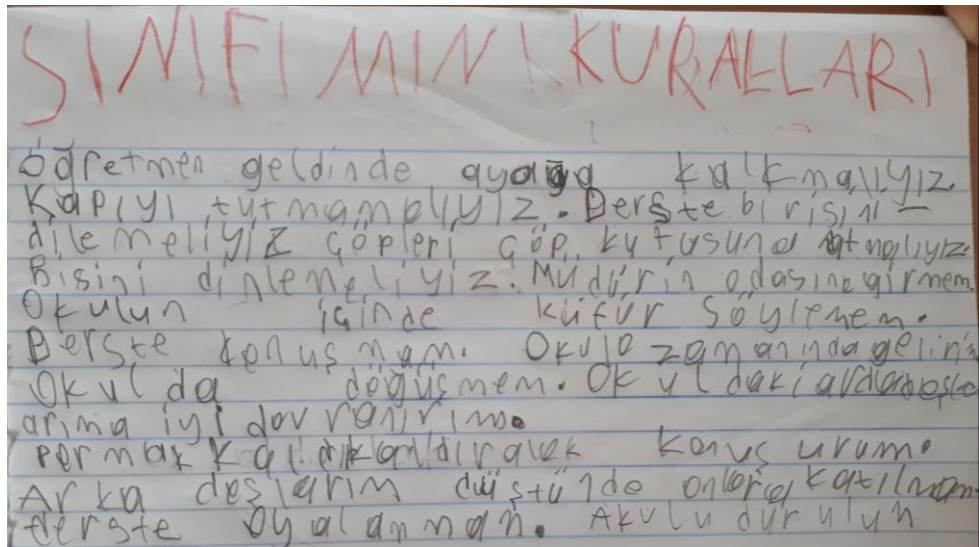 SINIFIMIN KURALLARI
Öğretmen geldinde ayağa kalkmalıyız
Kapıyı tutmamalıyız. Derste birisini
dilemeliyiz çöpleri çöp kutusuna atmalıyız
Bisini dinlemeliyiz. Müdürin odasına girmem.
Okulun içinde küfür söylemem.
Derste konuşmam. Okulo zamanında gelirim
Okulda döğüşmem. Okuldaki
arıma iyi davranırım.
Permak konuşurum.
Arka deşlarım düştünde onlara katılmam
derste oyalanmam. Akulu